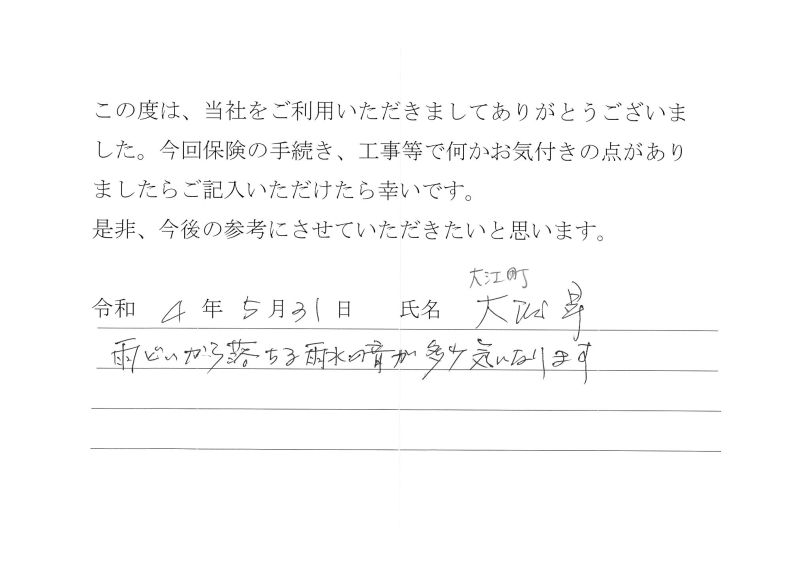 この度は、当社をご利用いただきましてありがとうございま
した。今回保険の手続き、工事等で何かお気付きの点があり
ましたらご記入いただけたら幸いです。
是非、今後の参考にさせていただきたいと思います。
大江町
令和 4 年 5 月 31 日 氏名 大
雨どいから落ちる雨水の音が多少気になります